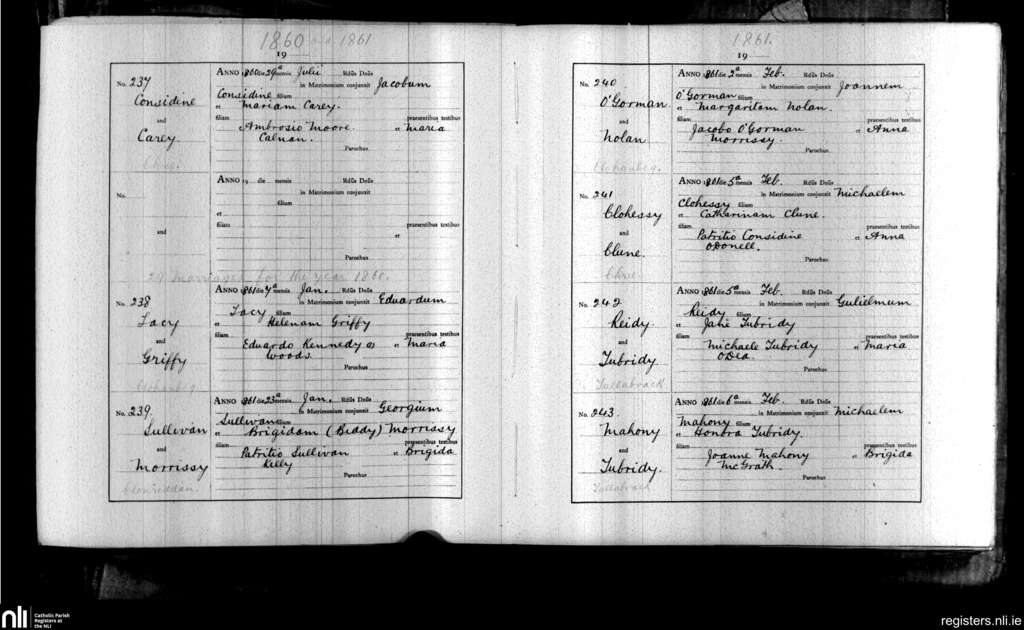 1860 and 1861
19
No. 237
Considine
and
Carey
Clue.
ANNO 1860 die 29ª mensis Julii Rdus Dnus
in Matrimonium conjunxit Jacobum
Considine filium
et Mariam Carey.
filiam praesentibus testibus
Ambrosio Moore et Maria
Calnan.
Parochus
No.
and
ANNO 19 die mensis Rdus Dnus
in Matrimonium conjunxit
filium
et
filiam praesentibus testibus
et
Parochus
29 marriages for the year 1860.
No. 238
Lacy
and
Griffy
Clohanbeg
ANNO 1861 die 7ª mensis Jan. Rdus Dnus
in Matrimonium conjunxit Eduardum
Lacy filium
et Helenam Griffy
filiam praesentibus testibus
Eduardo Kennedy et Maria
Woods.
Parochus
No. 239.
Sullivan
and
Morrissy
Clonreddan.
ANNO 1861 die 23ª mensis Jan. Rdus Dnus
in Matrimonium conjunxit Georgium
Sullivan filium
et Brigidam (Biddy) Morrissy
filiam praesentibus testibus
Patritio Sullivan et Brigida
Kelly
Parochus
1861.
19
No. 240
O'Gorman
and
Nolan
Clohanbeg.
ANNO 1861 die 2ª mensis Feb. Rdus Dnus
in Matrimonium conjunxit Joannem
O'Gorman filium
et Margaritam Nolan.
filiam praesentibus testibus
Jacobo O'Gorman et Anna
Morrissy.
Parochus
No. 241
Clohessy
and
Clune.
Clue
ANNO 1861 die 5ª mensis Feb. Rdus Dnus
in Matrimonium conjunxit Michaelem
Clohessy filium
et Catharinam Clune.
filiam praesentibus testibus
Patritio Considine et Anna
ODonell.
Parochus
No. 242
Reidy.
and
Tubridy
Tullabrack
ANNO 1861 die 5ª mensis Feb Rdus Dnus
in Matrimonium conjunxit Gulielmum
Reidy filium
et Jane Tubridy
filiam praesentibus testibus
Michaele Tubridy et Maria
ODea.
Parochus
No. 243.
Mahony
and
Tubridy.
Tullabrack
ANNO 1861 die 6ª mensis Feb Rdus Dnus
in Matrimonium conjunxit Michaelem
Mahony filium
et Honora Tubridy.
filiam praesentibus testibus
Joanne Mahony et Brigida
McGrath.
Parochus
nli Catholic Parish
Registers at
the NLI
registers.nli.ie